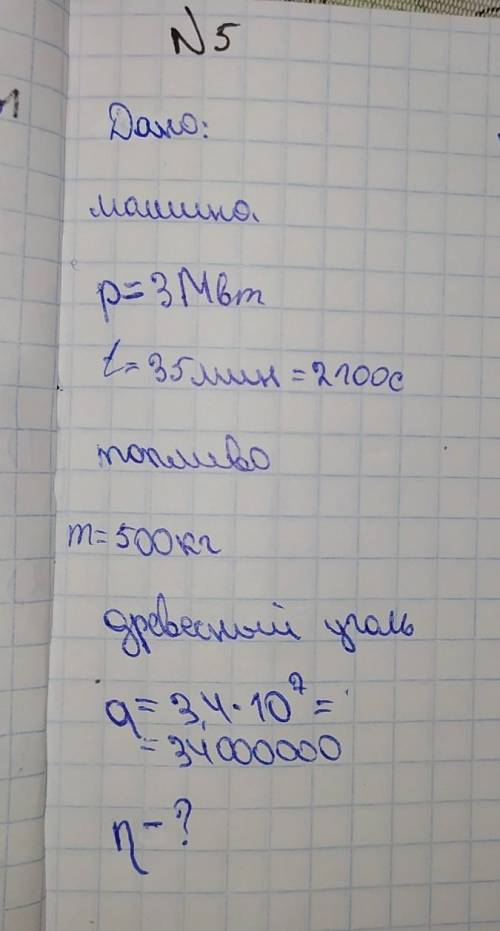 N5
Дано:
машина
p=3Мвт
t=35мин=2100с
топливо
m=500кг
древесный уголь
q=3,4·10⁷=
=34000000
η-?